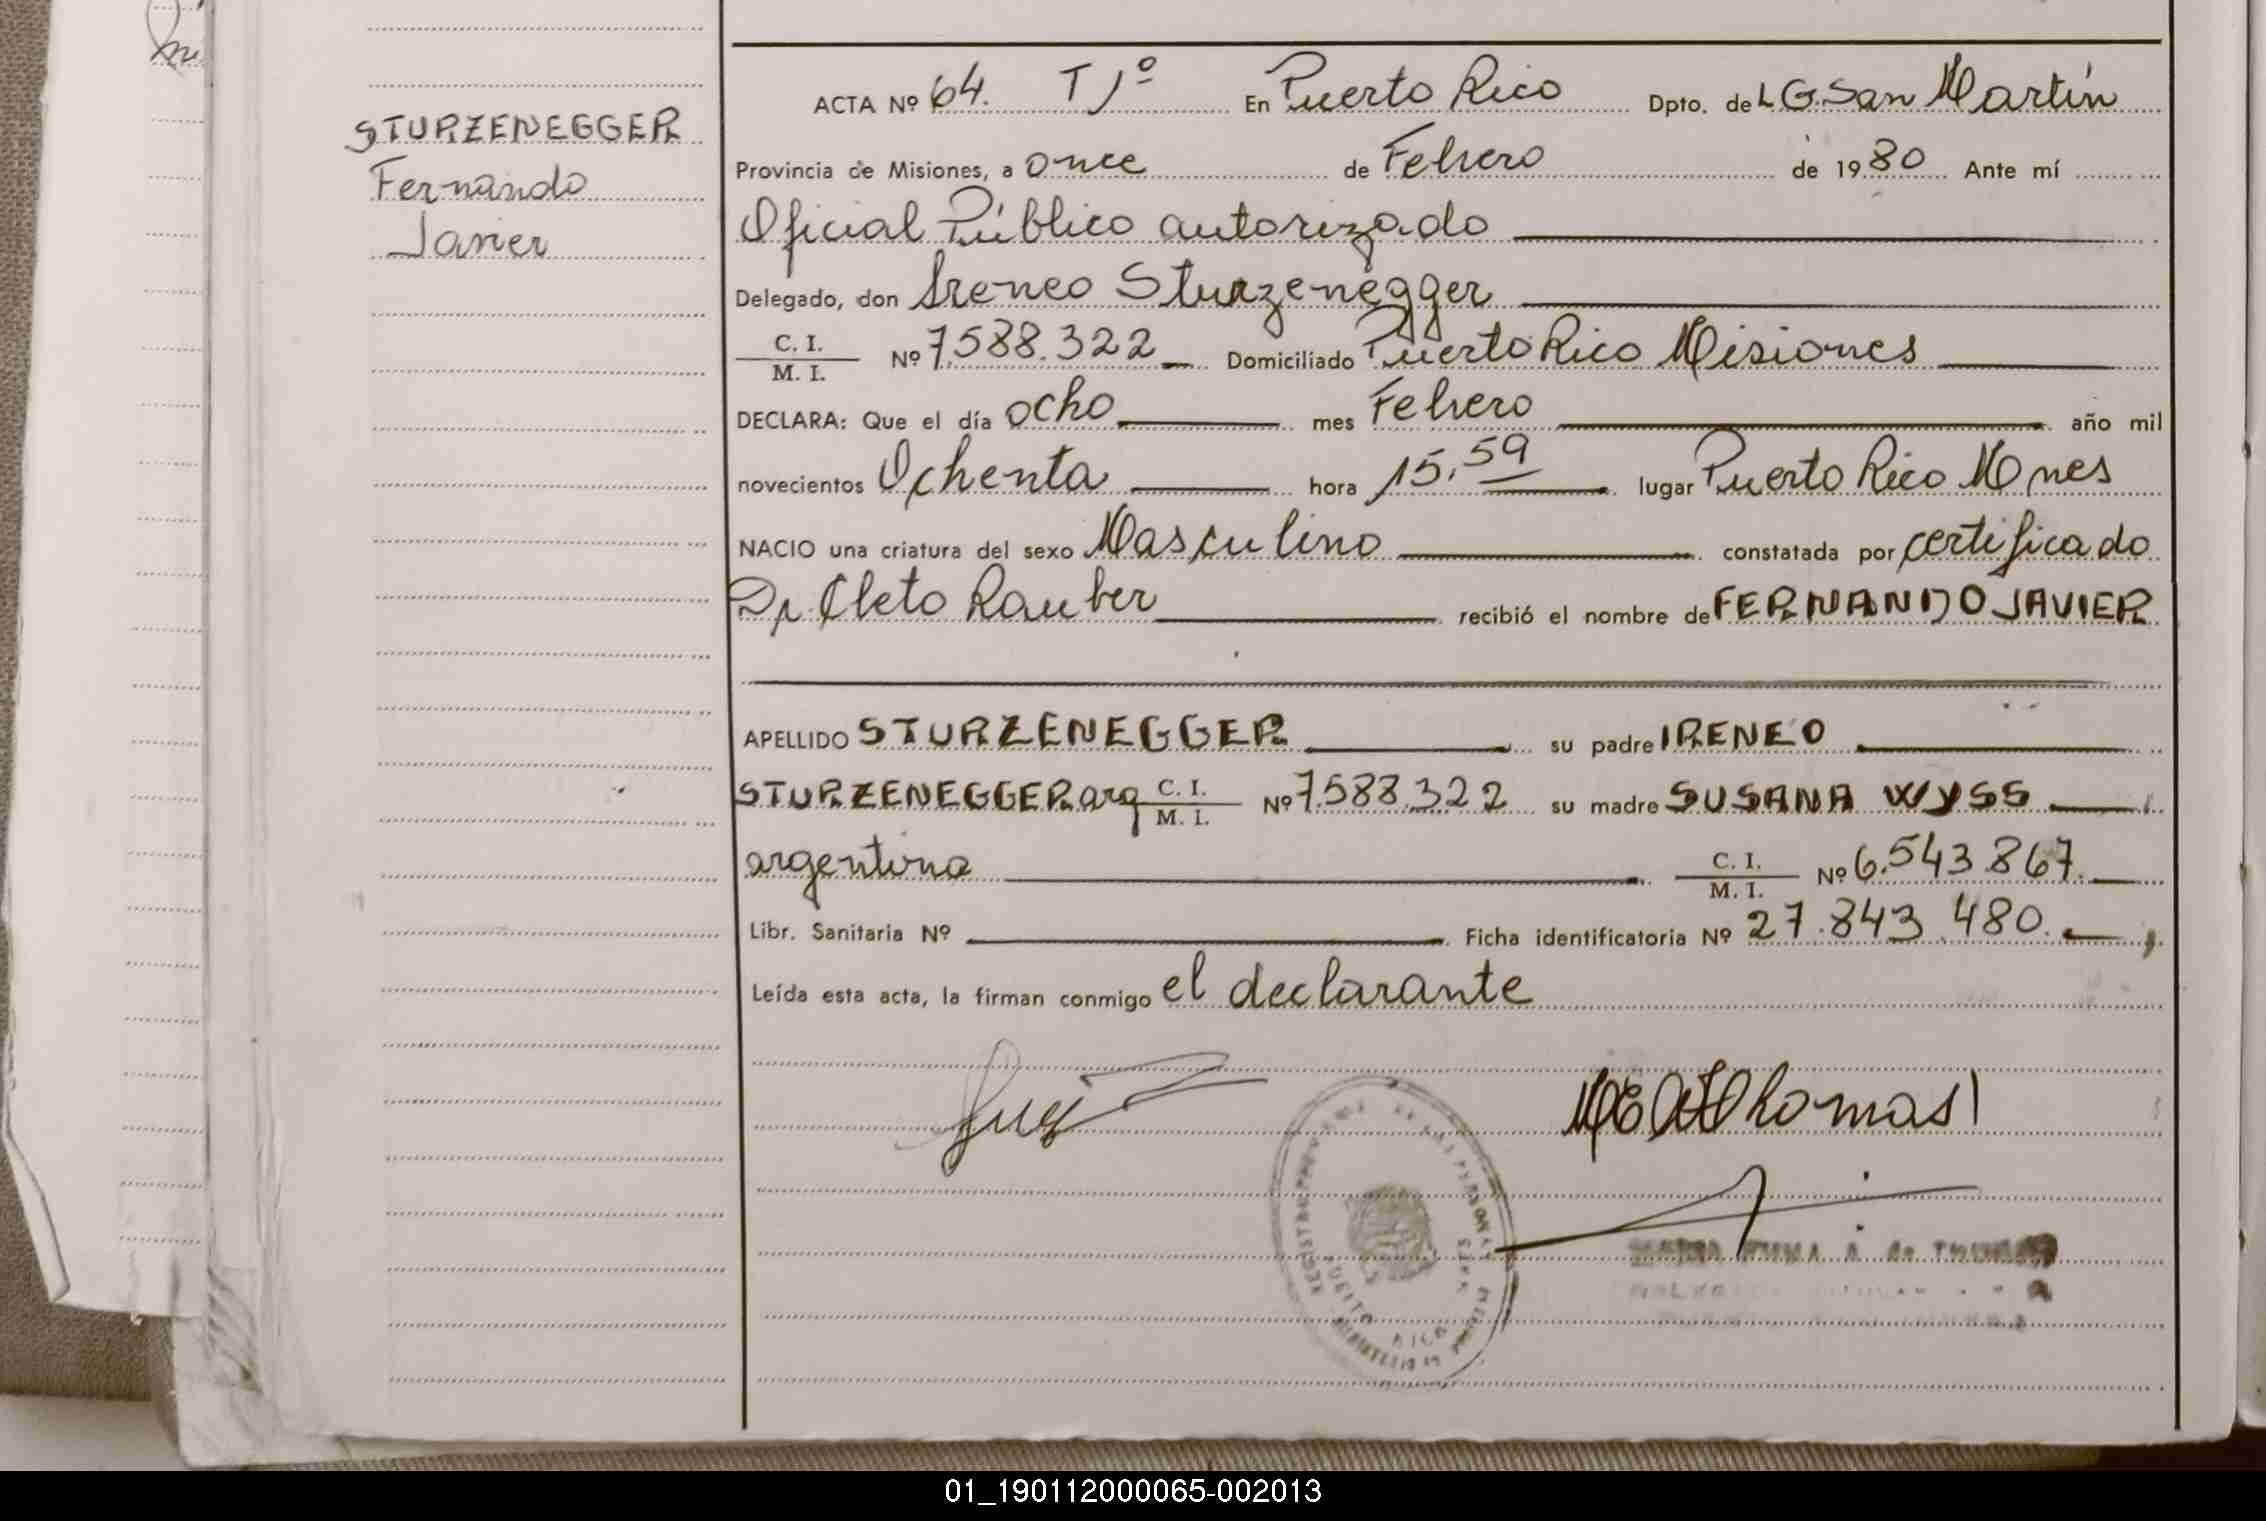 STURZENEGGER
Fernando
Javier
ACTA Nº 64. T 1º En Puerto Rico Dpto. de L G. San Martín
Provincia de Misiones, a once de Febrero de 1980 Ante mí
Oficial Público autorizado
Delegado, don Ireneo Sturzenegger
C. I.
M. I. Nº 7.588.322 Domiciliado Puerto Rico Misiones
DECLARA: Que el día ocho mes Febrero año mil
novecientos Ochenta hora 15,59 lugar Puerto Rico Mnes
NACIO una criatura del sexo Masculino constatada por certificado
Dr Cleto Rauber recibió el nombre de FERNANDO JAVIER
APELLIDO STURZENEGGER su padre IRENEO
STURZENEGGER arg C. I.
M. I. Nº 7.588.322 su madre SUSANA WYSS
argentina C. I.
M. I. Nº 6.543.867.
Libr. Sanitaria Nº Ficha identificatoria Nº 27.843.480.
Leída esta acta, la firman conmigo el declarante
Thomas
PUERTO RICO
01_190112000065-002013